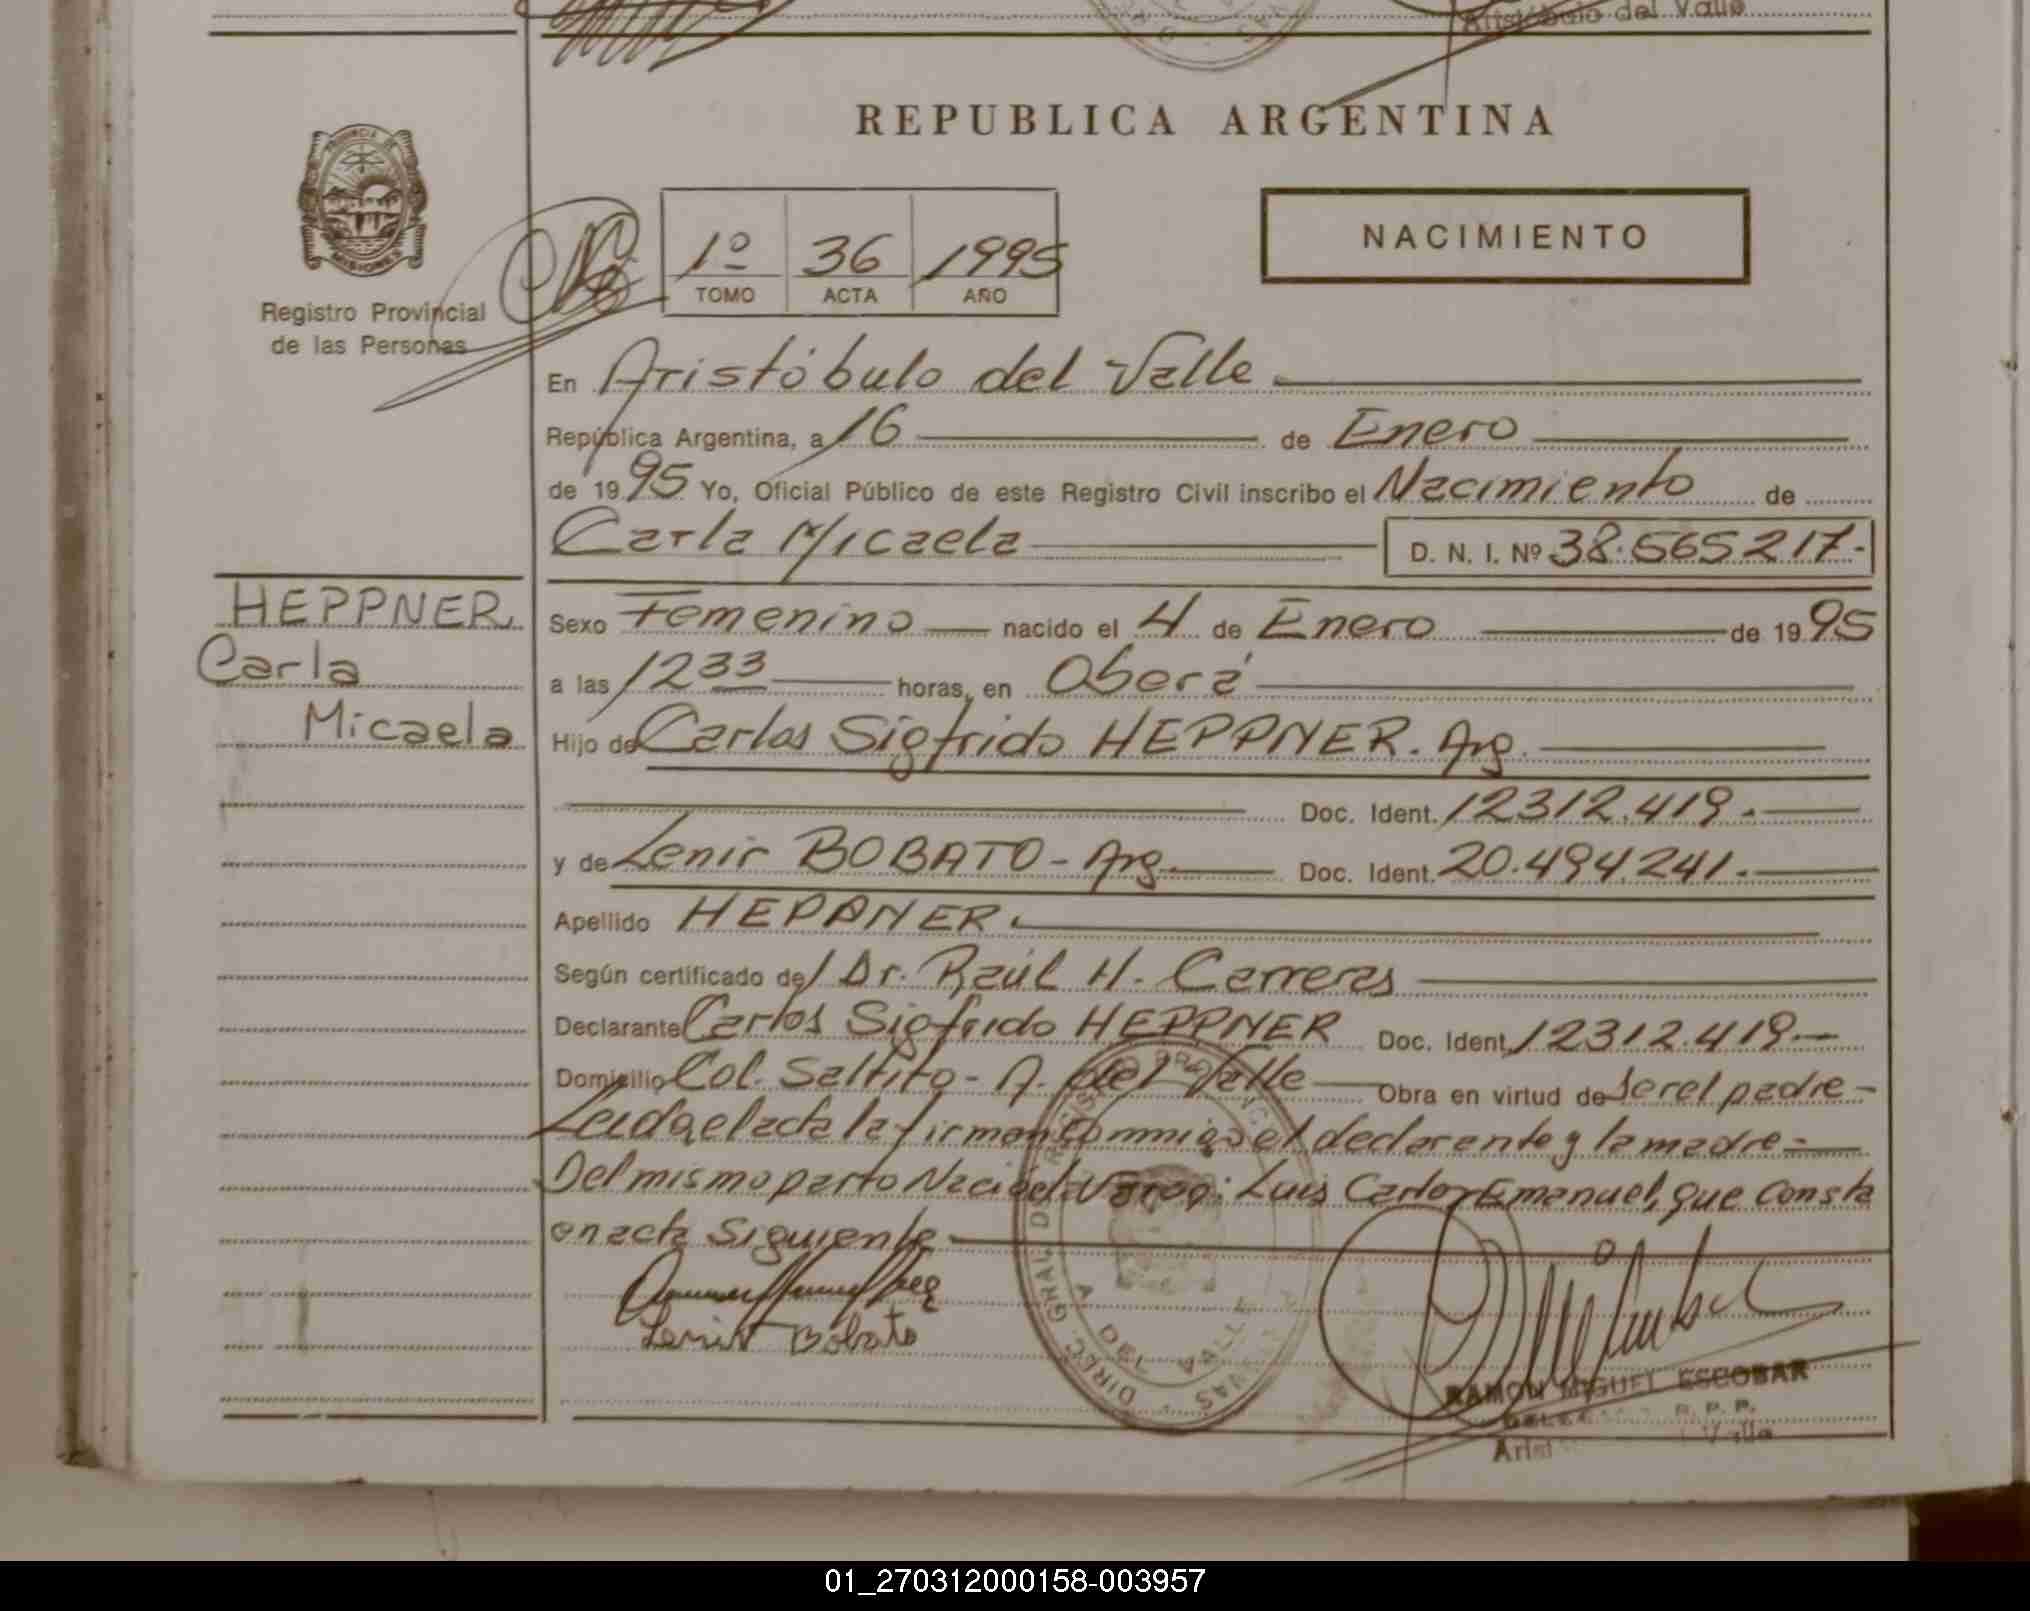 Aristóbulo del Valle
REPUBLICA ARGENTINA
PROVINCIA DE
MISIONES
Registro Provincial
de las Personas
1º 36 1995
TOMO ACTA AÑO
NACIMIENTO
En Aristóbulo del Valle
República Argentina, a 16 de Enero
de 1995 Yo, Oficial Público de este Registro Civil inscribo el Nacimiento de
Carla Micaela D. N. I. Nº 38.565217.-
HEPPNER
Carla
Micaela
Sexo Femenino nacido el 4 de Enero de 1995
a las 12 33 horas, en Oberá
Hijo de Carlos Sigfrido HEPPNER. Arg.
Doc. Ident. 12312.419.-
y de Lenir BOBATO - Arg. Doc. Ident. 20.494241.-
Apellido HEPPNER.
Según certificado de Dr. Raúl H. Carreras
Declarante Carlos Sigfrido HEPPNER Doc. Ident. 12312.419.-
Domicilio Col. Saltito - A. del Valle Obra en virtud de ser el padre-
Leida el acta la firman conmigo el declarante y la madre-
Del mismo parto Nació el Varon: Luis Carlos Emanuel, que consta
en acta siguiente
Lenir Bobato
DIREC. GRAL. DE REGISTRO PROVINC
A. DEL VALLE
RAMON MIGUEL ESCOBAR
R. P. P.
Valle
01_270312000158-003957